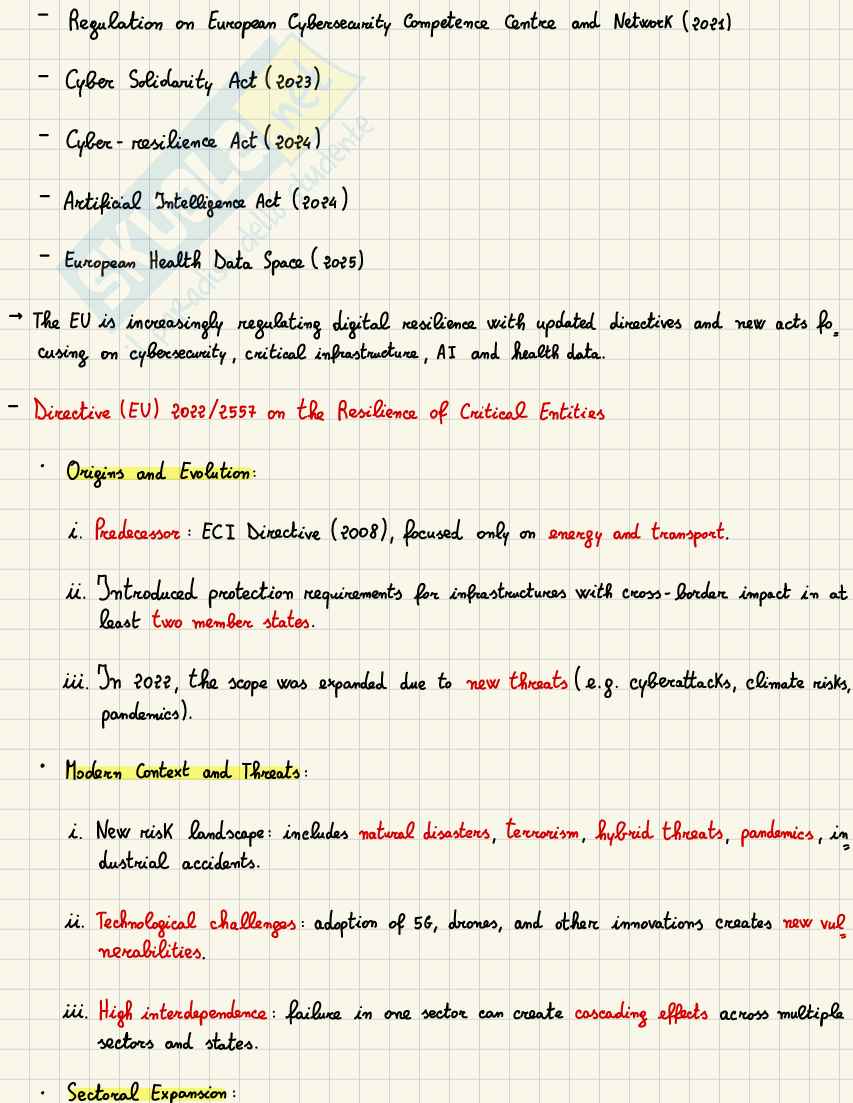 - Regulation on European Cybersecurity Competence Centre and Network (2021)
- Cyber Solidarity Act (2023)
- Cyber-resilience Act (2024)
- Artificial Intelligence Act (2024)
- European Health Data Space (2025)
→ The EU is increasingly regulating digital resilience with updated directives and new acts fo=
cusing on cybersecurity, critical infrastructure, AI and health data.
- Directive (EU) 2022/2557 on the Resilience of Critical Entities
· Origins and Evolution:
i. Predecessor: ECI Directive (2008), focused only on energy and transport.
ii. Introduced protection requirements for infrastructures with cross-border impact in at
least two member states.
iii. In 2022, the scope was expanded due to new threats (e.g. cyberattacks, climate risks,
pandemics).
· Modern Context and Threats:
i. New risk landscape: includes natural disasters, terrorism, hybrid threats, pandemics, in=
dustrial accidents.
ii. Technological challenges: adoption of 5G, drones, and other innovations creates new vul=
nerabilities.
iii. High interdependence: failure in one sector can create cascading effects across multiple
sectors and states.
· Sectoral Expansion:
SKUOLA.net
dello studente